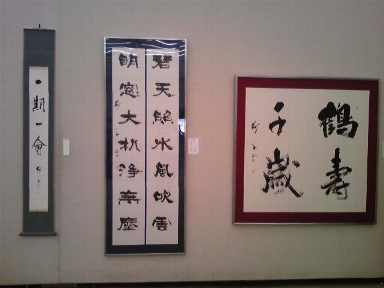 鶴壽
千歳
碧天照水風吹雲
明窓大机淨無塵
一期一會